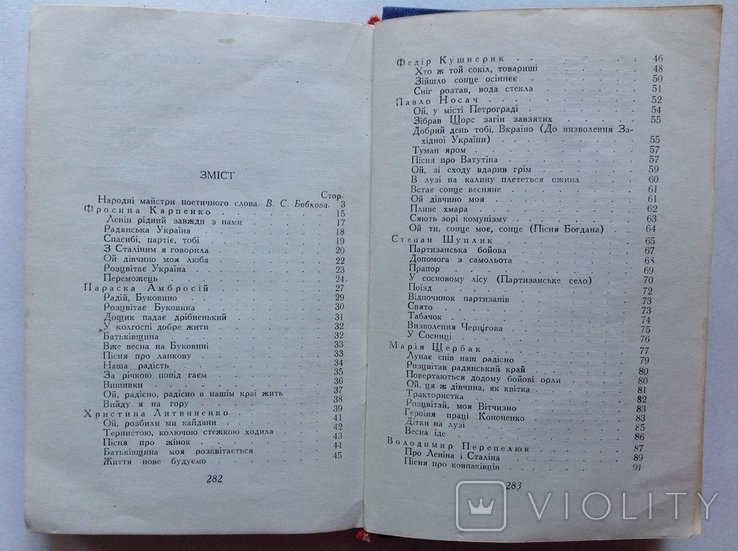 ЗМІСТ
Стор.
Народні майстри поетичного слова. В. С. Бобкова. 3
Фросина Карпенко 15
Ленін рідний завжди з нами 17
Радянська Україна 18
Спасибі, партіє, тобі 19
З Сталіним я говорила 20
Ой дівчино моя люба 22
Розцвітає Україна 23
Переможець 24
Параска Амбросій 27
Радій, Буковино 29
Розцвітає Буковина 30
Дощик падає дрібненький 31
У колгоспі добре жити 32
Батьківщина 32
Вже весна на Буковині 33
Пісня про ланкову 33
Наша радість 34
За річкою попід гаєм 35
Вишивки 36
Ой, радісно, радісно в нашім краї жить 37
Вийду я на гору 38
Христина Литвиненко 39
Ой, розбили ми кайдани 41
Тернистою, колючою стежкою ходила 42
Пісня про жінок 43
Батьківщина моя розквітається 44
Життя нове будуємо 45
282
Федір Кушнерик 46
Хто ж той сокіл, товариші 48
Зійшло сонце осіннєє 50
Сніг розтав, вода стекла 51
Павло Носач 52
Ой, у місті Петрограді 54
Зібрав Щорс загін завзятих 55
Добрий день тобі, Вкраїно (До визволення За-
хідної України) 55
Туман яром 57
Пісня про Ватутіна 57
Ой, зі сходу вдарив грім 59
В лузі на калину плететься ожина 60
Встає сонце весняне 61
Ой дівчино моя 61
Пливе хмара 62
Сяють зорі комунізму 63
Ой ти, сонце моє, сонце (Пісня Богдана) 64
Степан Шуплик 65
Партизанська бойова 67
Допомога з самольота 68
Прапор 69
У сосновому лісу (Партизанське село) 70
Поїзд 71
Відпочинок партизанів 72
Свято 73
Табачок 74
Визволення Чернігова 75
У Сосниці 76
Марія Щербак 77
Лунає спів наш радісно 79
Розцвітав радянський край 80
Повертаються додому бойові орли 80
Ой, ця ж дівчина, як квітка 81
Трактористка 82
Розцвітай, моя Вітчизно 83
Героїня праці Кононенко 83
Дітки на лузі 85
Весна іде 86
Володимир Перепелюк 87
Про Леніна і Сталіна 89
Пісня про ковпаківців 91
283
VIOLITY